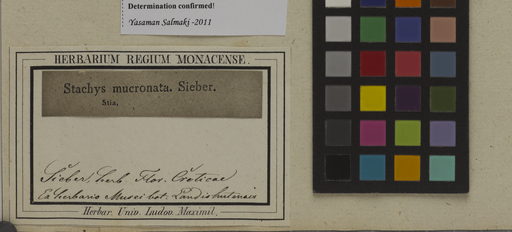 Determination confirmed!
Yasaman Salmaki -2011
HERBARIUM REGIUM MONACENSE.
Stachys mucronata. Sieber.
Sieber, herb. Flor. Creticae
Ex herbario Musei bot. Landishutensis
Herbar. Univ. Ludov. Maximil.